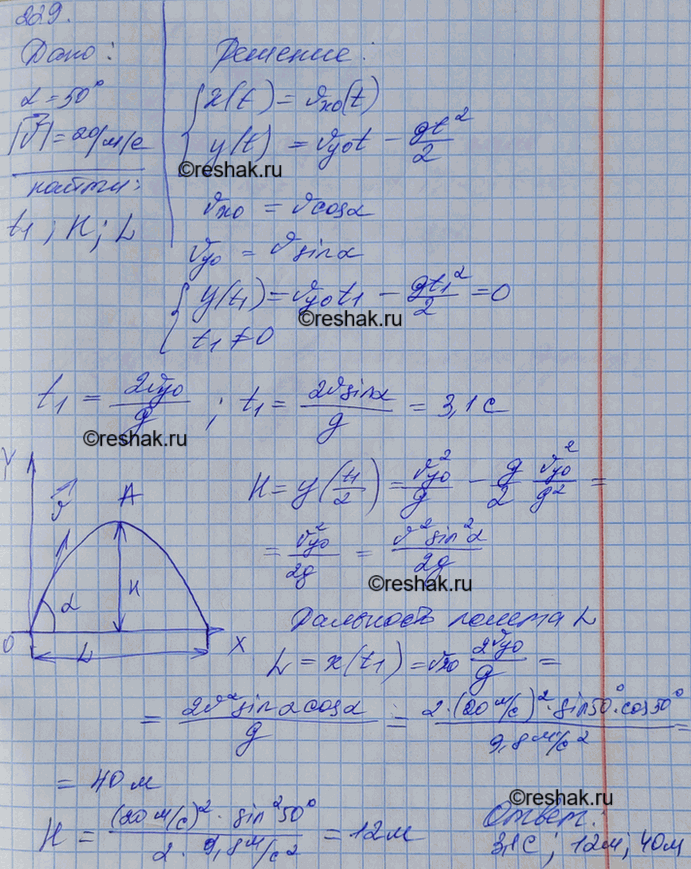 229.
Дано:
α = 50°
|v⃗| = 20 м/с
найти:
t₁; H; L
Решение:
x(t) = vₓ₀(t)
y(t) = v_y₀t − gt²/2
©reshak.ru
vₓ₀ = v cosα
v_y₀ = v sinα
y(t₁) = v_y₀t₁ − gt₁²/2 = 0
©reshak.ru
t₁ ≠ 0
t₁ = 2v_y₀/g ; t₁ = 2v sinα/g = 3,1 с
©reshak.ru
Y
v⃗
A
α
H
O
L
X
H = y(t₁/2) = v_y₀²/g − g/2 v_y₀²/g² =
= v_y₀²/2g = v² sin²α/2g
©reshak.ru
Дальность полета L
L = x(t₁) = vₓ₀ 2v_y₀/g =
= 2v² sinα cosα/g = 2·(20 м/с)²·sin50°·cos50°/9,8 м/с² =
= 40 м
©reshak.ru
H = (20 м/с)²·sin²50°/2·9,8 м/с² = 12 м
Ответ:
3,1 с; 12 м; 40 м